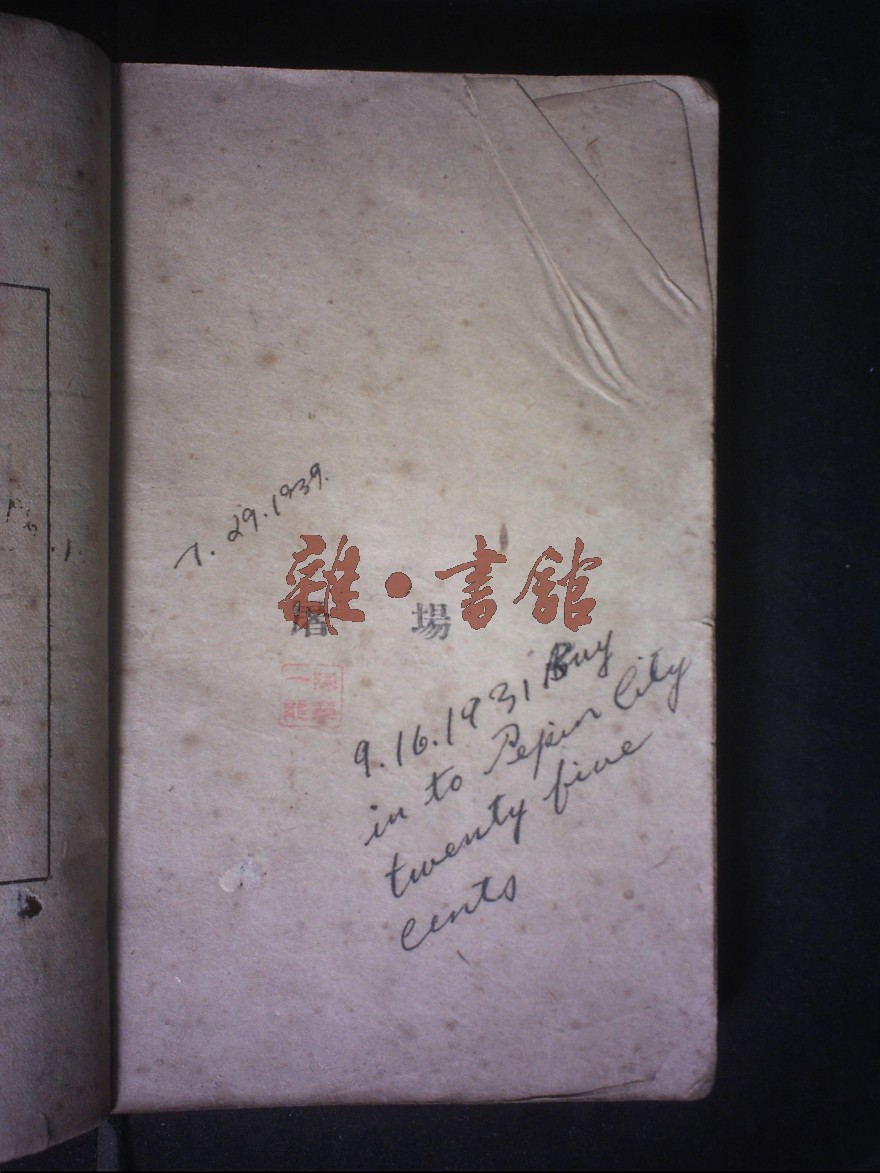 7. 29. 1939.
雜·書館
屠場
9. 16. 1931 Buy
in to Pepin City
twenty five
cents